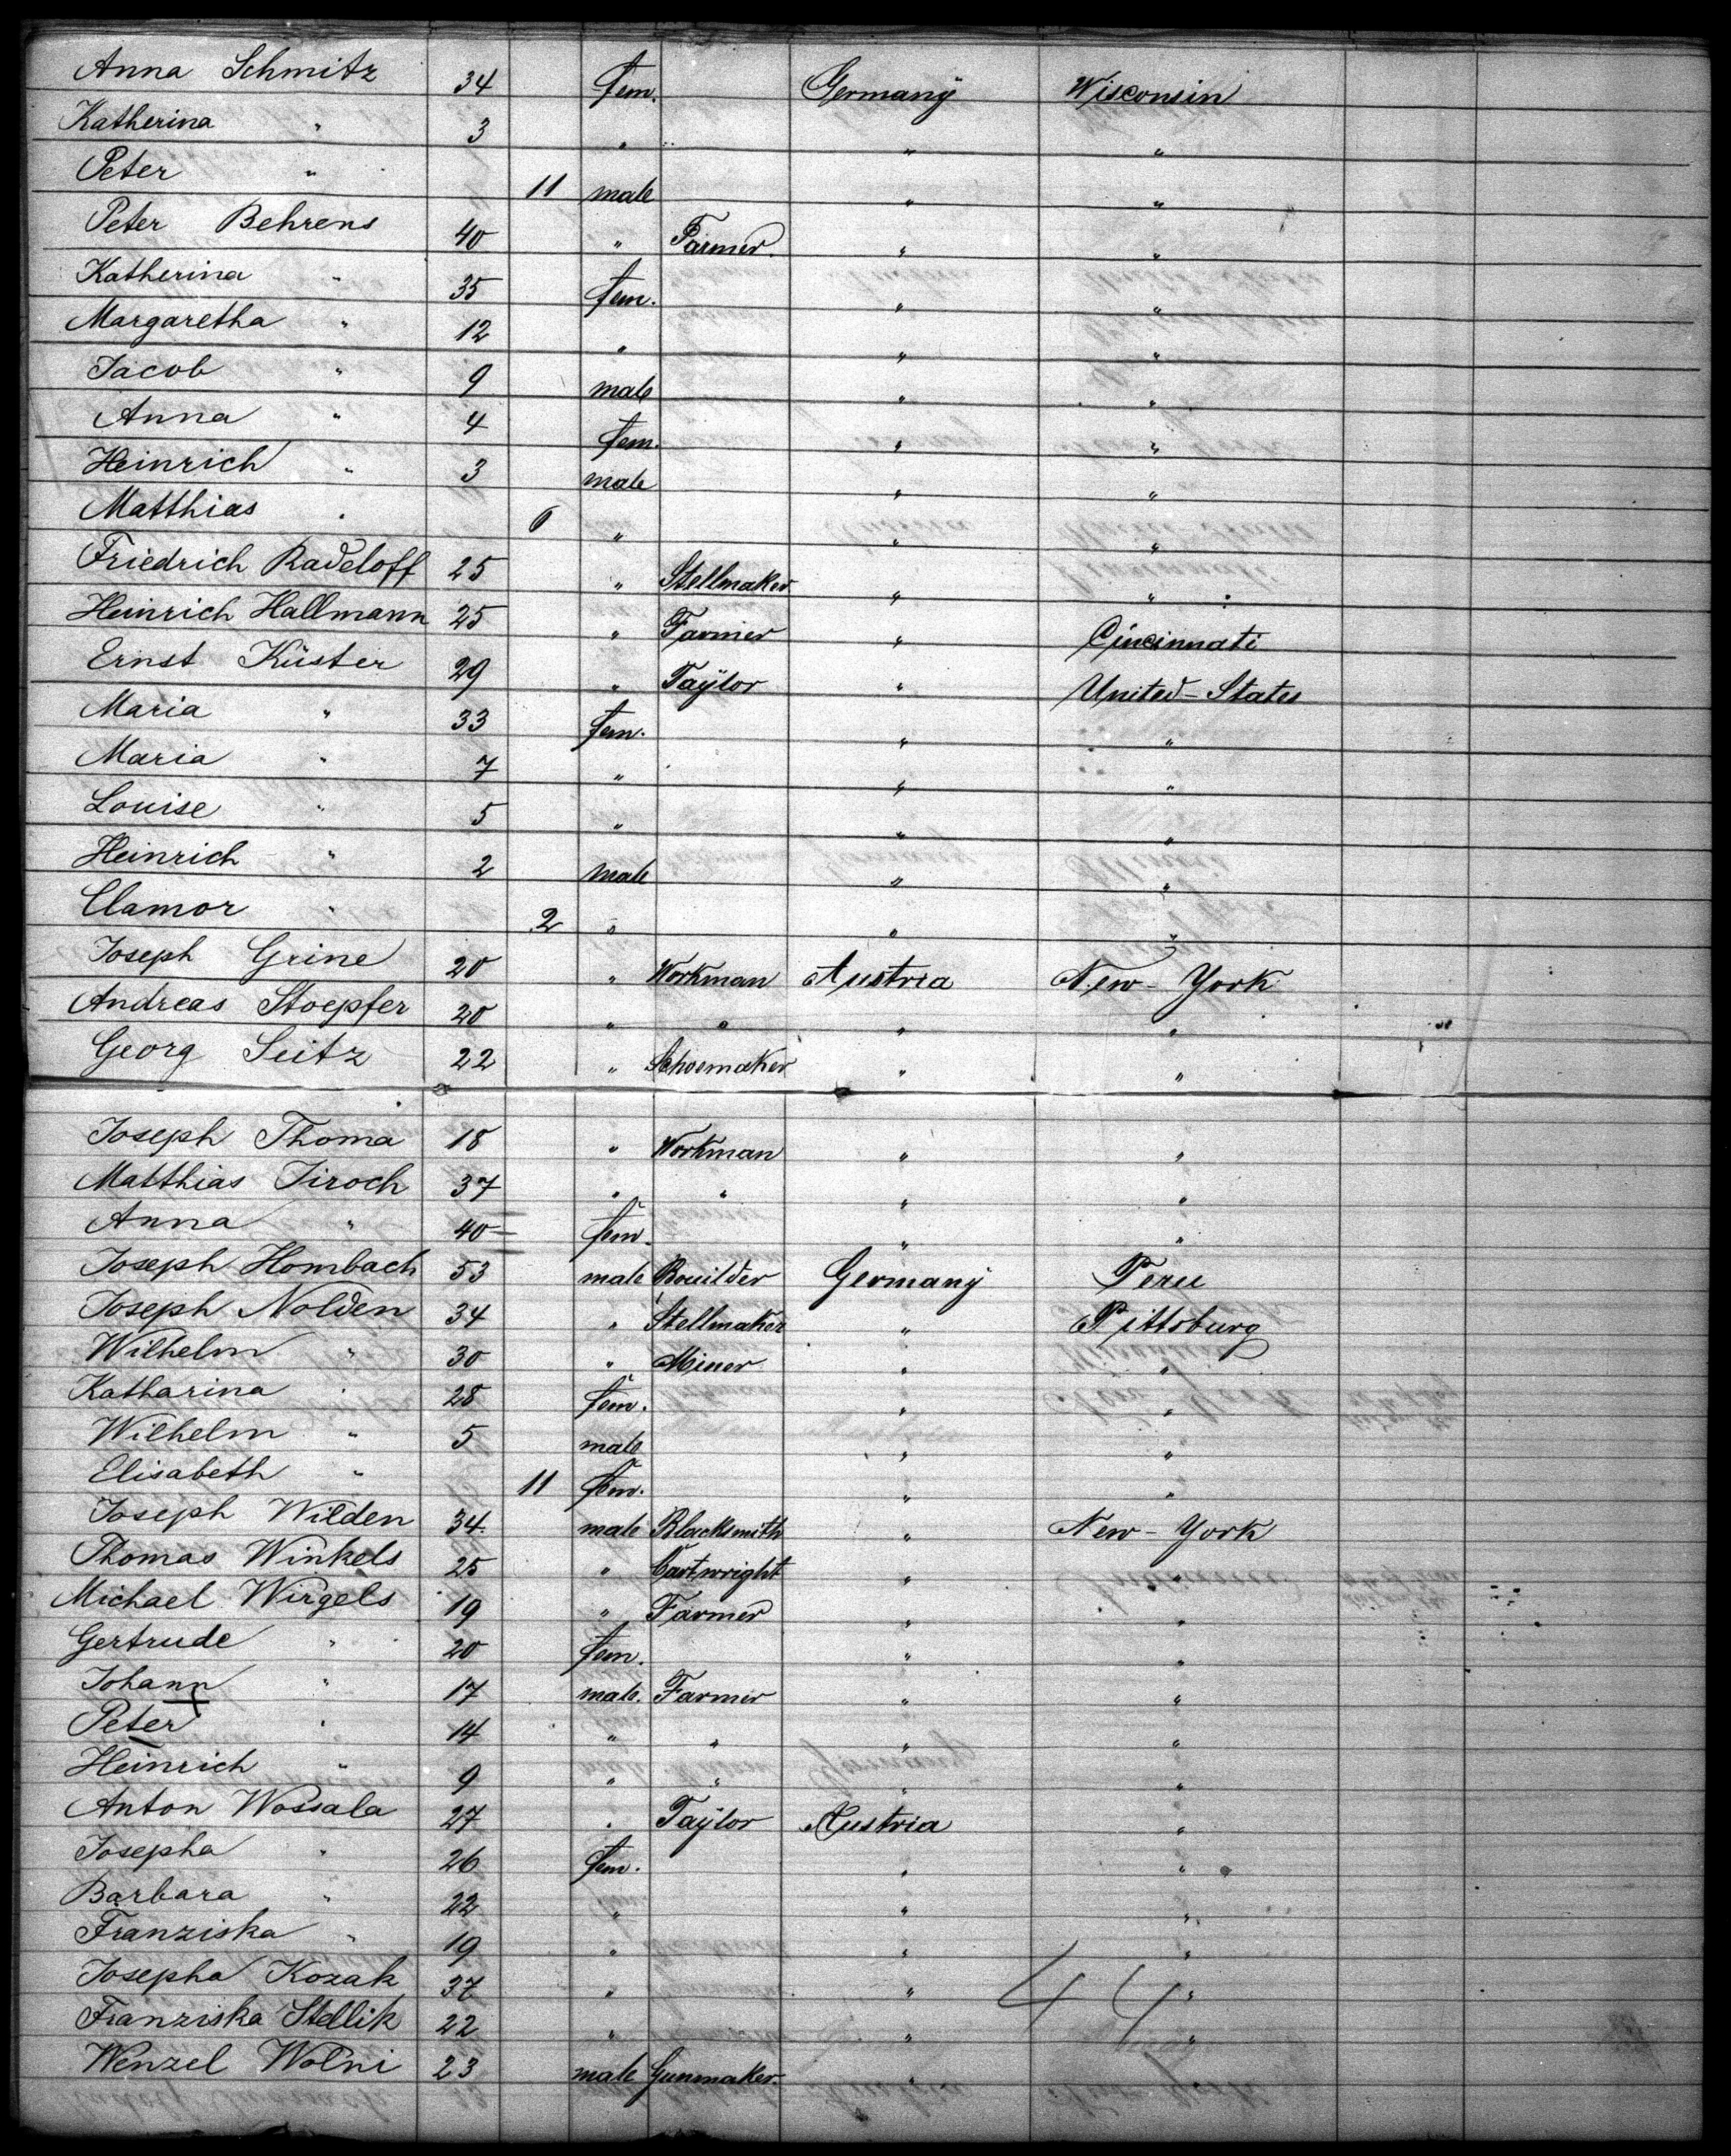 Anna Schmitz 34 fem. Germany Wisconsin
Katherina " 3 " " "
Peter " 11 male " "
Peter Behrens 40 " Farmer " "
Katherina " 35 fem. " "
Margaretha " 12 " " "
Jacob " 9 male " "
Anna " 4 fem. " "
Heinrich " 3 male " "
Matthias " 6 " " "
Friedrich Radeloff 25 " Stellmaker " "
Heinrich Hallmann 25 " Farmer " Cincinnati
Ernst Küster 29 " Taylor " United-States
Maria " 33 fem. " "
Maria " 7 " " "
Louise " 5 " " "
Heinrich " 2 male " "
Clamor " 2 " " "
Joseph Grine 20 " Workman Austria New-York
Andreas Stoepfer 20 " " " "
Georg Seitz 22 " Schoemaker " "
Joseph Thoma 18 " Workman " "
Matthias Jiroch 37 " " " "
Anna " 40 fem. " "
Joseph Hombach 53 male Bouilder Germany Peru
Joseph Nolden 34 " Stellmaker " Pittsburg
Wilhelm " 30 " Miner " "
Katharina " 28 fem. " "
Wilhelm " 5 male " "
Elisabeth " 11 fem. " "
Joseph Wilden 34 male Blacksmith " New-York
Thomas Winkels 25 " Cartwright " "
Michael Wirgels 19 " Farmer " "
Gertrude " 20 fem. " "
Johann " 17 male. Farmer " "
Peter " 14 " " " "
Heinrich " 9 " " " "
Anton Wossala 27 " Taylor Austria "
Josepha " 26 fem. " "
Barbara " 22 " " "
Franziska " 19 " " "
Josepha Kozak 37 " " "
Franziska Stellik 22 " " "
44
Wenzel Wolni 23 male Gunmaker. "